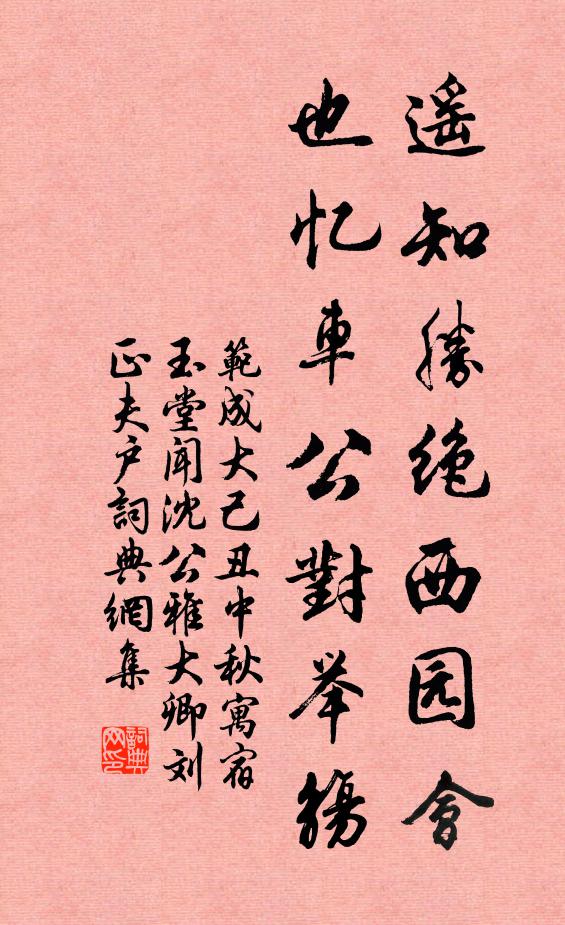 遥知勝绝西园會
也忆車公對举觞
範成大己丑中秋寓宿
玉堂闻沈公雅大卿刘
正夫户詞典網集
詞典
网印